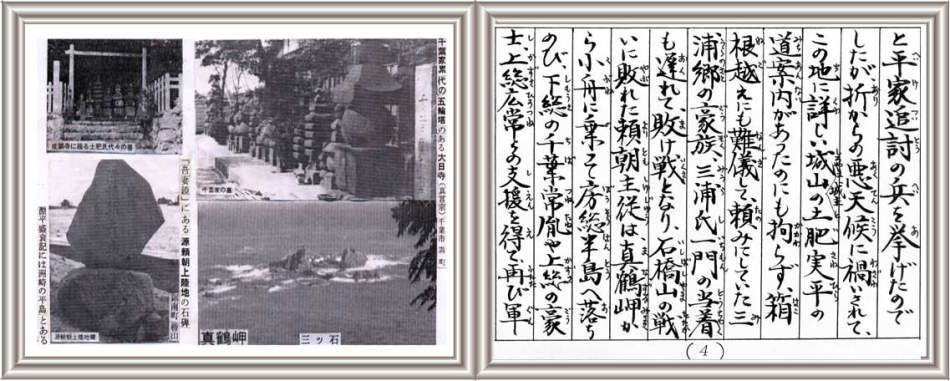 千葉家累代の五輪塔のある大日寺(真言宗)千葉市 町
土肥氏代々の墓
千葉家の墓
「吾妻鏡」にある源頼朝上陸地の石碑
鋸南町 勝山
源頼朝上陸地碑
源平盛衰記には洲崎の平島とある
真鶴岬
三ッ石
と平家追討の兵を挙げたので
したが、折からの悪天候に禍いされて、
この地に詳しい城山の土肥実平の
道案内があったのにも拘らず、箱
根越えにも難儀して、頼みにしていた三
浦郷の豪族、三浦氏一門の当着
も遅れて、敗け戦となり、石橋山の戦
いに敗れた頼朝主従は真鶴岬か
ら小舟に乗って房総半島へ落ち
のび、下総の千葉常胤や上総の豪
士、上総広常らの支援を得て再び軍
(4)